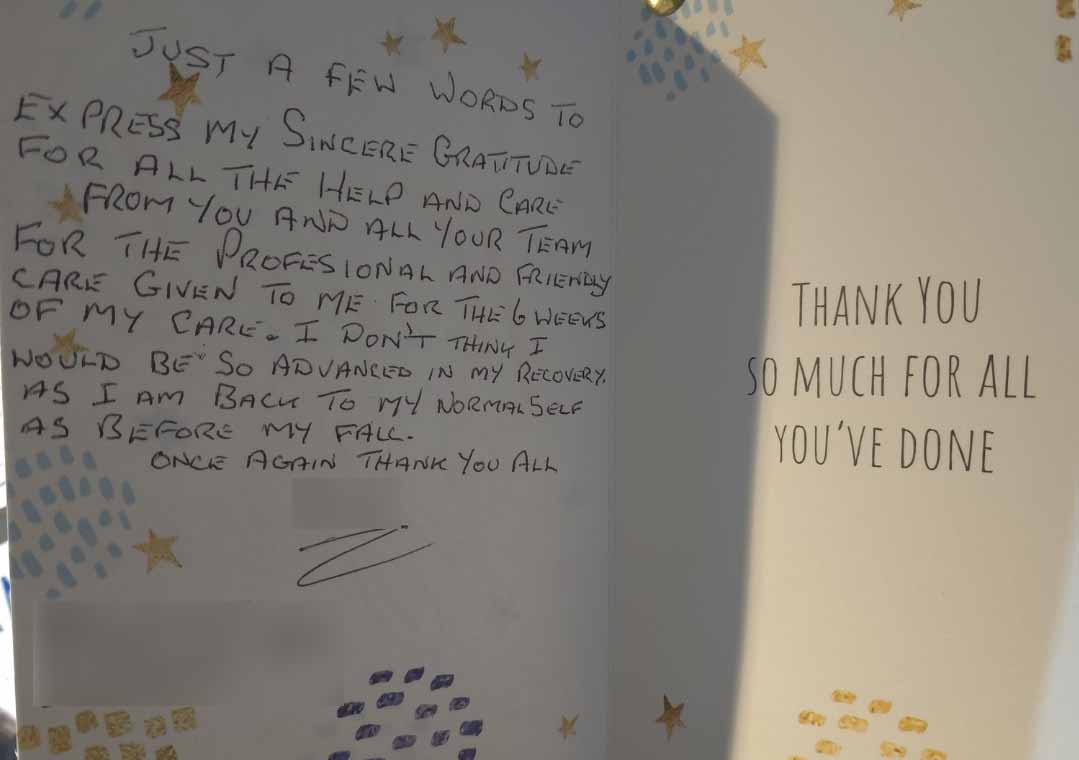 JUST A FEW WORDS TO
EXPRESS MY SINCERE GRATITUDE
FOR ALL THE HELP AND CARE
FROM YOU AND ALL YOUR TEAM
FOR THE PROFESIONAL AND FRIENDLY
CARE GIVEN TO ME FOR THE 6 WEEKS
OF MY CARE. I DON'T THINK I
WOULD BE SO ADVANCED IN MY RECOVERY.
AS I AM BACK TO MY NORMAL SELF
AS BEFORE MY FALL.
ONCE AGAIN THANK YOU ALL
THANK YOU
SO MUCH FOR ALL
YOU'VE DONE